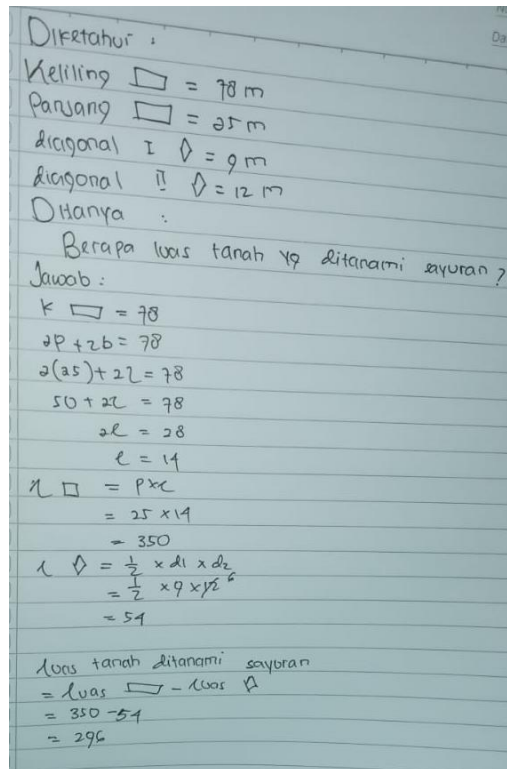 Diketahui :
Keliling ▱ = 78 m
Panjang ▱ = 25 m
diagonal I ◊ = 9 m
diagonal II ◊ = 12 m
Ditanya :
Berapa luas tanah yg ditanami sayuran ?
Jawab :
K ▭ = 78
2p + 2l = 78
2(25) + 2l = 78
50 + 2l = 78
2l = 28
l = 14
L □ = p x l
= 25 x 14
= 350
L ◊ = 1/2 x d1 x d2
= 1/2 x 9 x 12 6
= 54
luas tanah ditanami sayuran
= luas ▱ - luas ◊
= 350 - 54
= 296